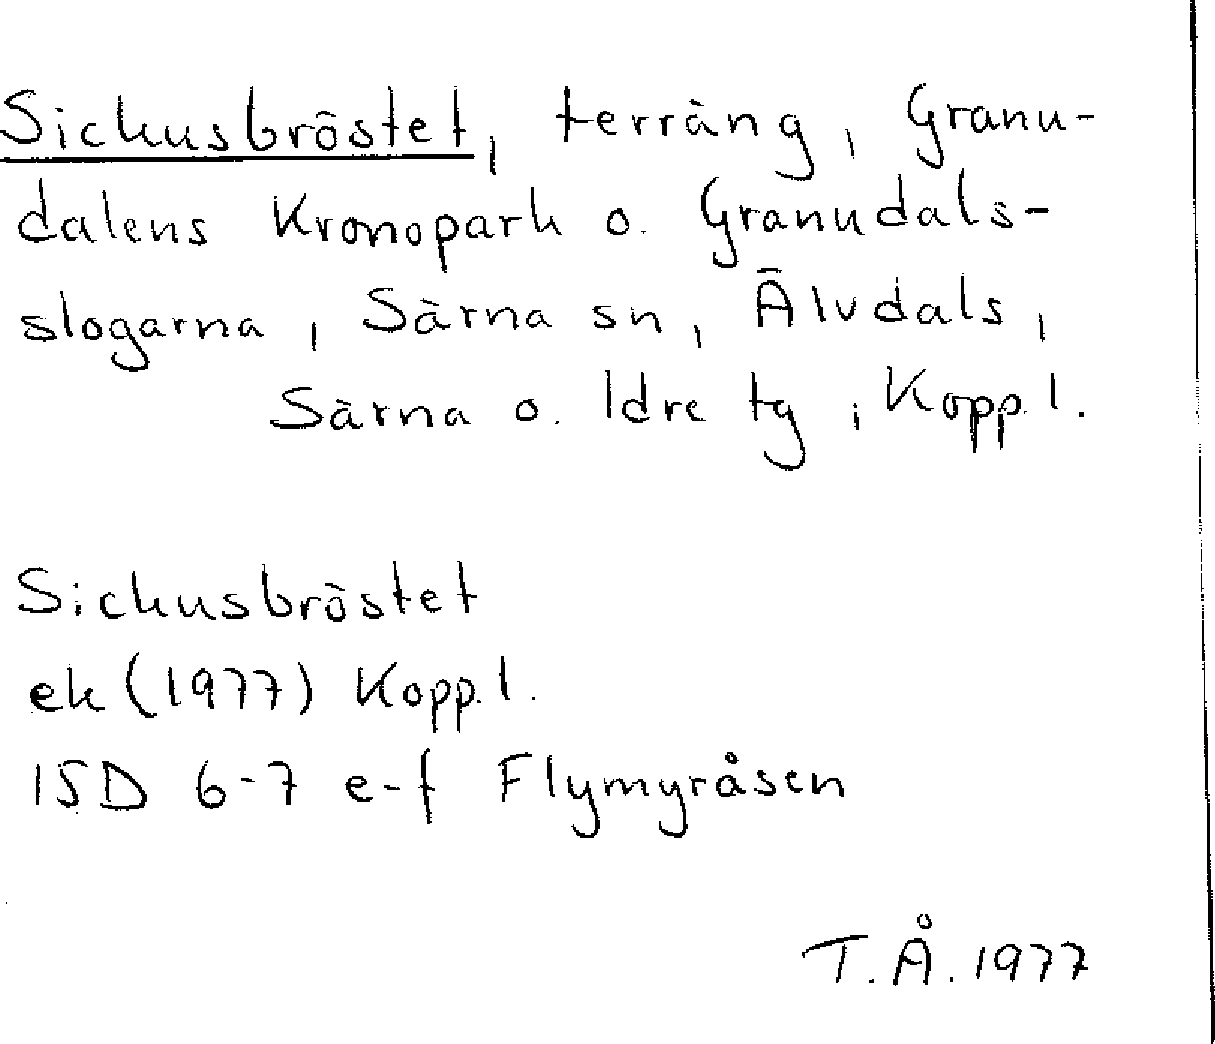 Sickusbröstet, terräng, Granu-
dalens Kronopark o. Granudals-
slogarna, Särna sn, Älvdals,
Särna o. Idre tg, Kopp.l.
Sickusbröstet
ek (1977) Kopp.l.
15D 6-7 e-f Flymyråsen
T.Å. 1977